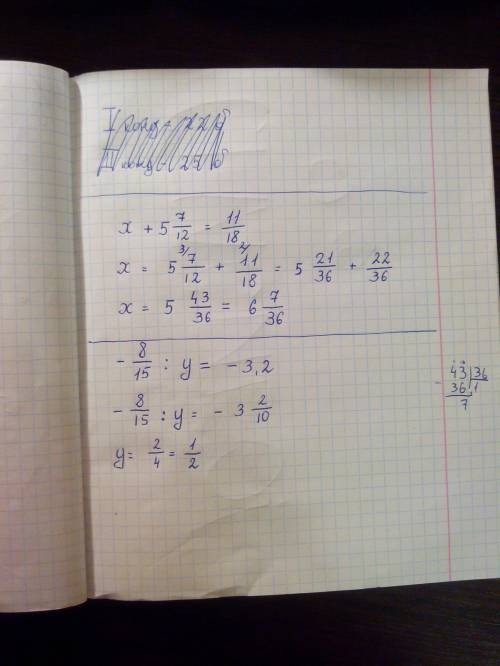 x + 5 7/12 = 11/18
x = 5 7/12 3/ + 11/18 2/ = 5 21/36 + 22/36
x = 5 43/36 = 6 7/36
- 8/15 : y = - 3,2
- 8/15 : y = - 3 2/10
y = 2/4 = 1/2
- 43 | 36
36 | 1
7